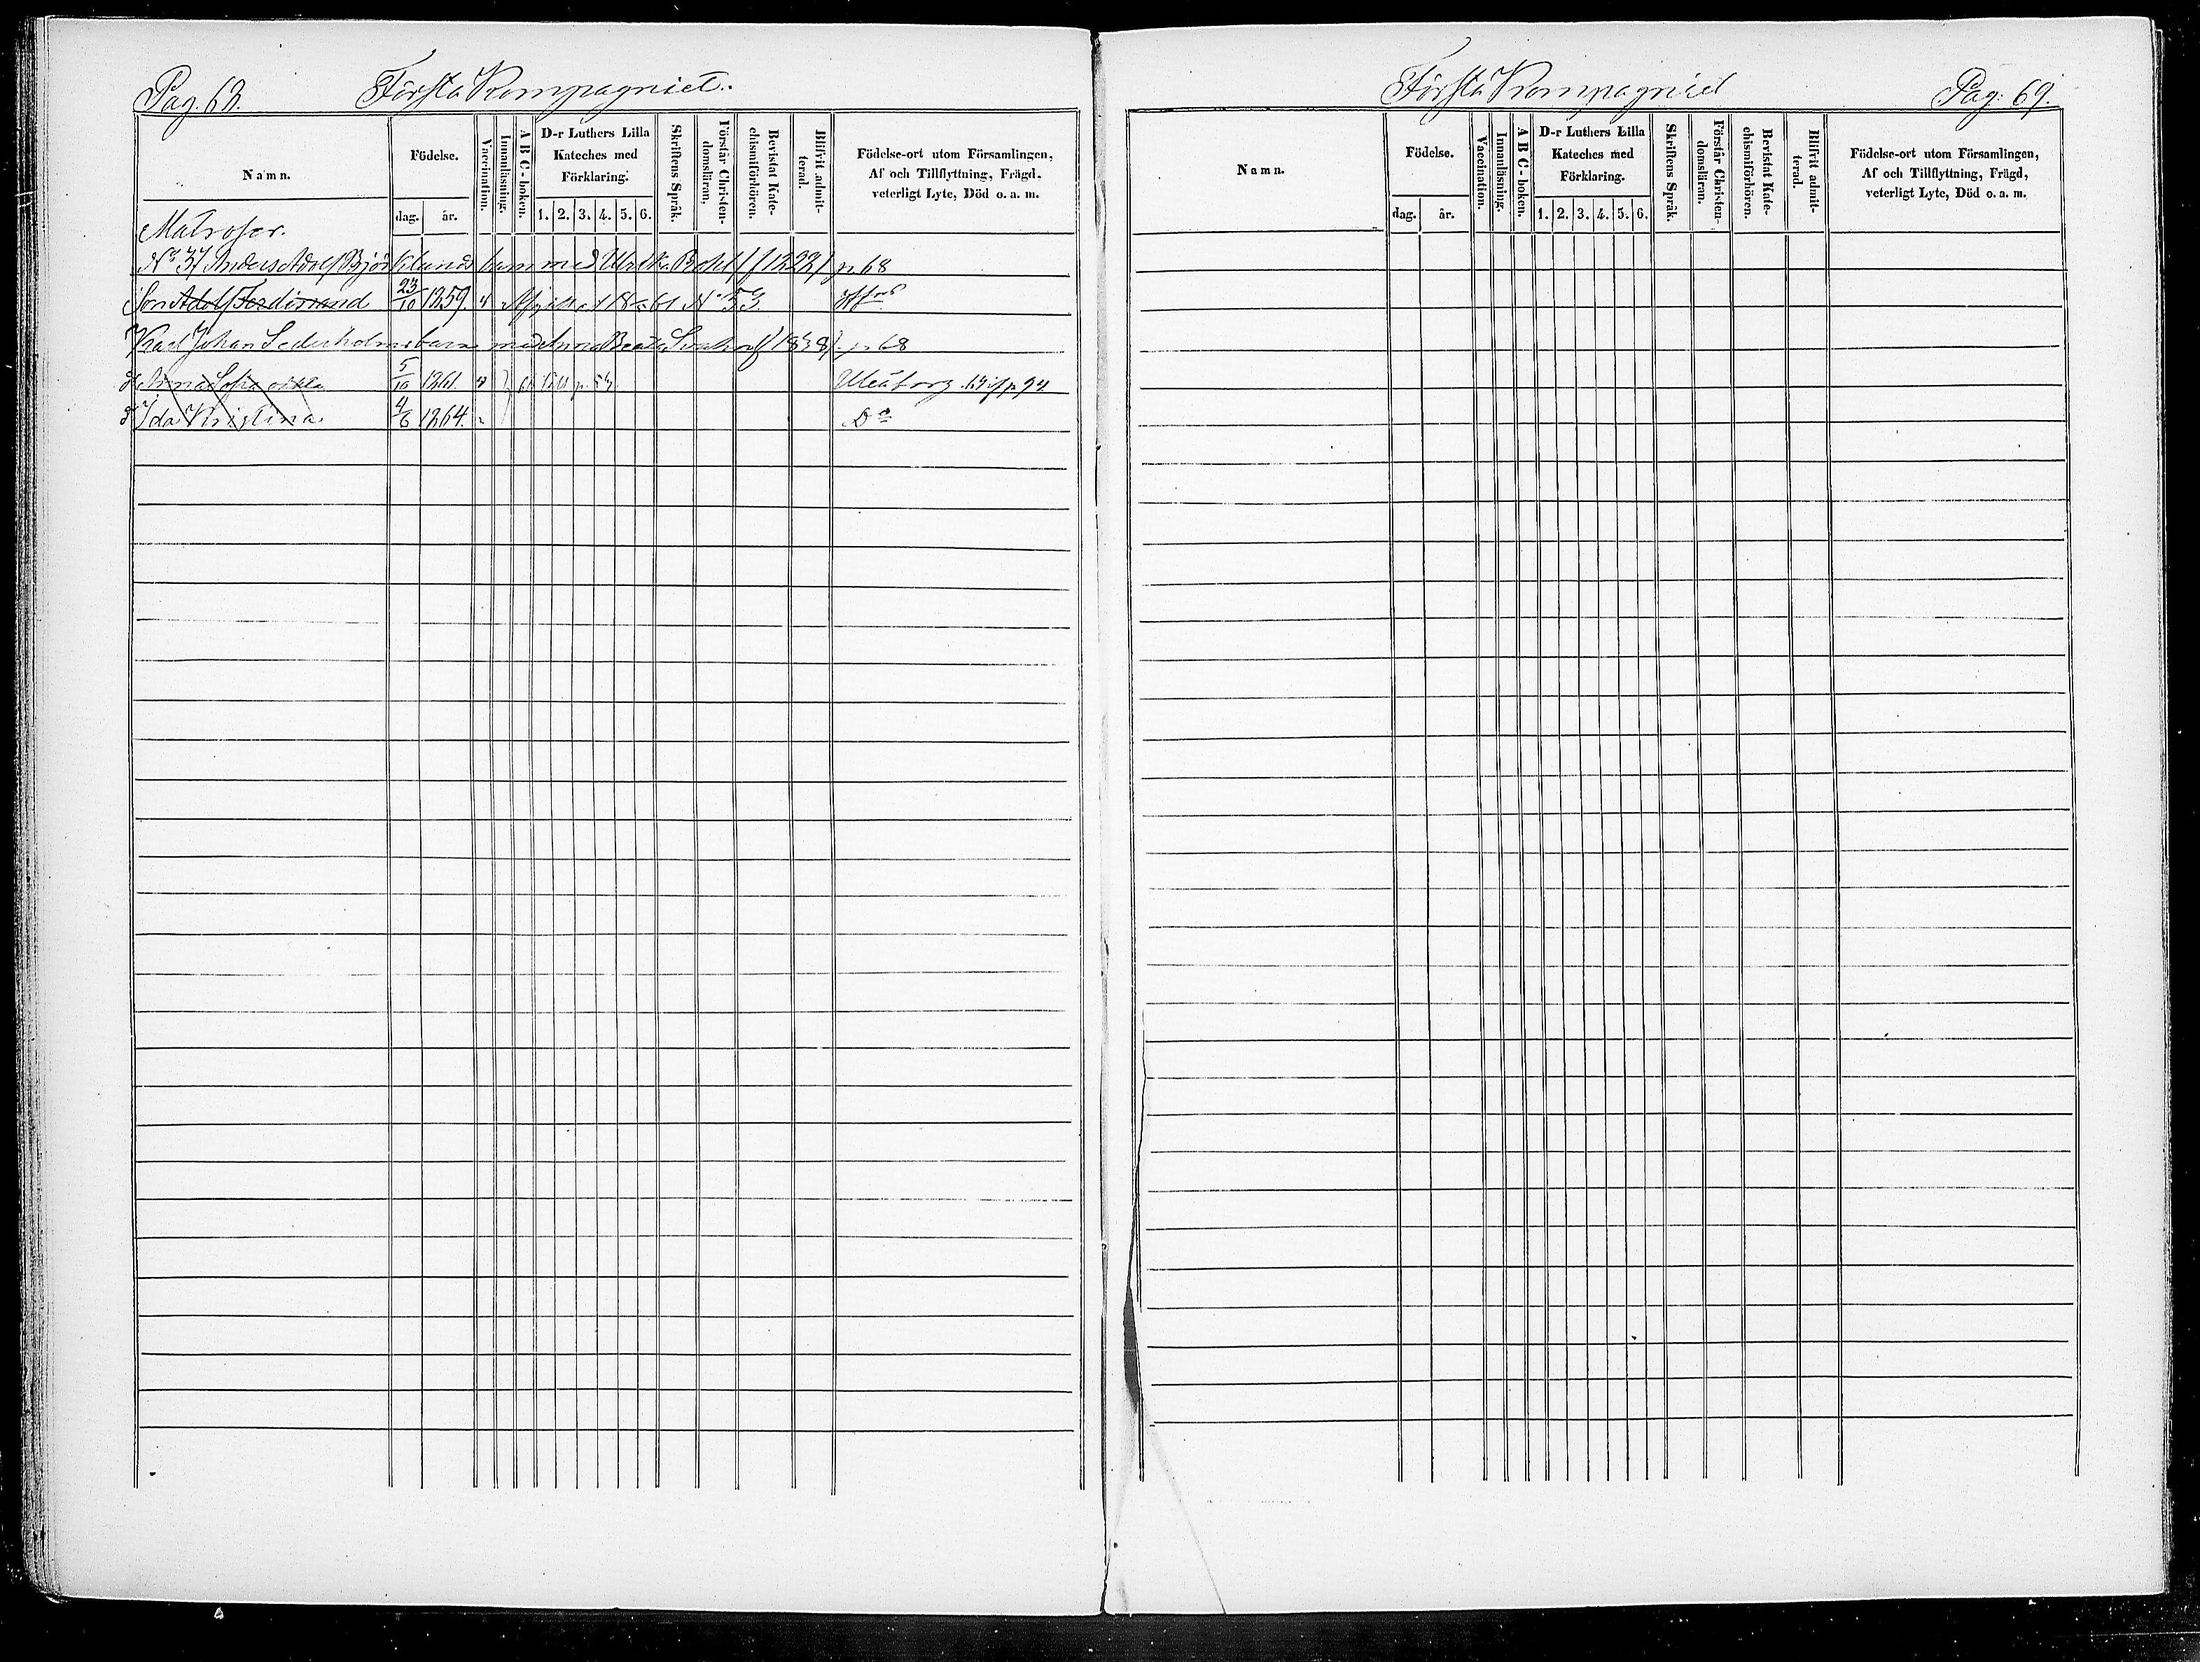 Pag. 68.
Första Kompagniet.
Namn.
Födelse.
dag.
år.
Vaccination.
Innanläsning.
A B C - boken.
D-r Luthers Lilla
Kateches med
Förklaring.
1. 2. 3. 4. 5. 6.
Skriftens Språk.
Förstår Christen-
domsläran,
Bevistat Kate-
chismiförhören.
Blifvit admit-
terad.
Födelse-ort utom Församlingen,
Af och Tillflyttning, Frägd,
veterligt Lyte, Död o. a. m.
Matroser.
No 37 Anders Adolf Björklunds barn med Ulrika f 1828/ p 68
Son Adolf Ferdinand 23/10 1859. v 18 61 No 53
Karl Johan Sederholms barn med Anna Beata f 1838/ p 68
d Anna Sofia 5/10 1861. v Uleåborg
d Ida Kristina 4/6 1864. Do
Första Kompagniet
Pag. 69.
Namn.
Födelse.
dag.
år.
Vaccination.
Innanläsning.
A B C - boken.
D-r Luthers Lilla
Kateches med
Förklaring.
1. 2. 3. 4. 5. 6.
Skriftens Språk.
Förstår Christen-
domsläran.
Bevistat Kate-
chismiförhören.
Blifvit admit-
terad.
Födelse-ort utom Församlingen,
Af och Tillflyttning, Frägd,
veterligt Lyte, Död o. a. m.